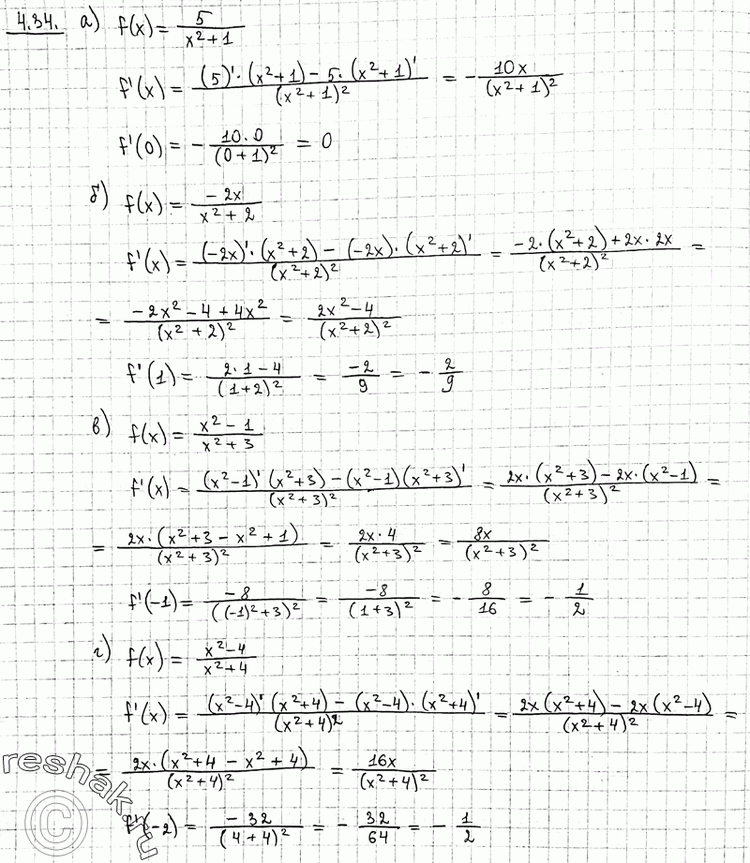 4.34. а) f(x) = 5/(x²+1)
f'(x) = ((5)'·(x²+1) − 5·(x²+1)')/(x²+1)² = −10x/(x²+1)²
f'(0) = −(10·0)/(0+1)² = 0
б) f(x) = −2x/(x²+2)
f'(x) = ((−2x)'·(x²+2) − (−2x)·(x²+2)')/(x²+2)² = (−2·(x²+2)+2x·2x)/(x²+2)² =
= (−2x²−4+4x²)/(x²+2)² = (2x²−4)/(x²+2)²
f'(1) = (2·1−4)/(1+2)² = −2/9 = −2/9
в) f(x) = (x²−1)/(x²+3)
f'(x) = ((x²−1)'(x²+3)−(x²−1)(x²+3)')/(x²+3)² = (2x·(x²+3)−2x·(x²−1))/(x²+3)² =
= (2x·(x²+3−x²+1))/(x²+3)² = (2x·4)/(x²+3)² = 8x/(x²+3)²
f'(−1) = −8/((−1)²+3)² = −8/(1+3)² = −8/16 = −1/2
г) f(x) = (x²−4)/(x²+4)
f'(x) = ((x²−4)'(x²+4)−(x²−4)·(x²+4)')/(x²+4)² = (2x(x²+4)−2x(x²−4))/(x²+4)² =
= (2x·(x²+4−x²+4))/(x²+4)² = 16x/(x²+4)²
f'(−2) = −32/(4+4)² = −32/64 = −1/2
reshak.ru
©